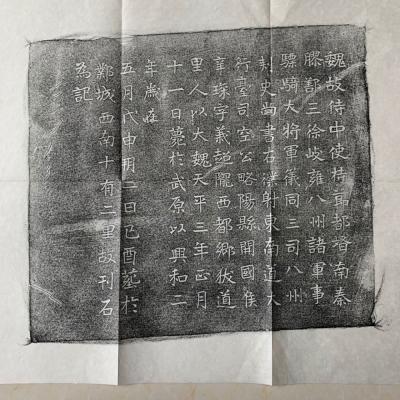 魏故侍中使持節都督南秦
膠三徐岐雍八州諸軍事
驃騎大將軍儀同三司八州
刾史尚書右僕射東南道大
行臺司空公略陽縣開國侯
琛字義隴西都鄉狄道
里人以大魏天平三年正月
十一日薨於武原以興和二
年歲在
五月戊申朔二日己酉塟於
鄴城西南十有二里故刊石
為記